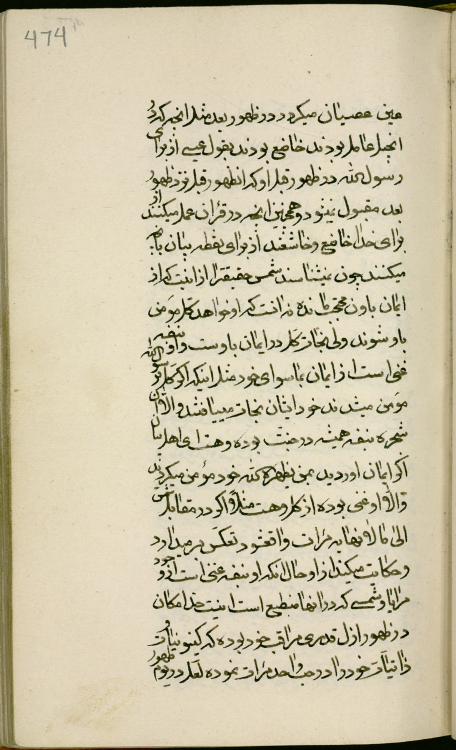 474
عین عصیان میکردند در ظهور بعد مثلا آنچه که در
انجیل عامل بودند خاضع بودند بقول عیسی از برای
رسول الله در ظهور قبل او که از ظهور قبل نزد ظهور
بعد مقبول نمیشود و همچنین آنچه در قرآن عمل میکنند
برای خدا خاضع و خاشعند از برای نقطه بیان
میکنند چون نمیشناسند شمس حقیقت را از اینست که از
ایمان باو محتجب مانده نه اینست که او خواهد کل مؤمن
باو شوند ولی نجات کل در ایمان باوست و او بنفسه
غنی است از ایمان ماسوای خود مثل اینکه اگر کل برسول الله
مؤمن میشدند خود ایشان نجات مییافتند والا آن
شجره بنفسه همیشه در جنت بوده و هست ای اهل بیان
اگر ایمان آوردید بمن یظهره الله خود مؤمن میگردید
والا او غنی بوده از کل و هست مثلا اگر در مقابل شمس
الی ما لا نهایه مرآت واقع شود تعکس بر میدارد
و حکایت میکند از او و حال آنکه او بنفسه غنی است از وجود
مرایا و شمسی که در آنها منطبع است اینست حد امکان
در ظهور ازل قدری مراقب خود بوده که کینونیات و
ذاتیات خود را در حب واحد مرآت نموده لعل در یوم ظهور